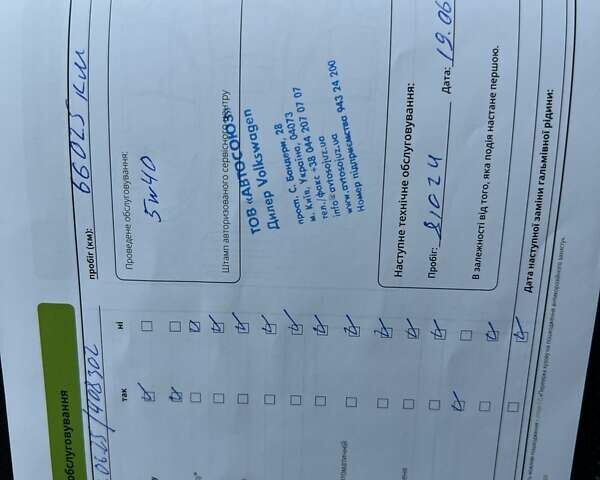 обслуговування
0625/408302
пробіг (км): 66025 км
так
ні
Проведене обслуговування:
5w40
Штамп авторизованого сервісного центру
ТОВ «АВТОСОЮЗ»
Дилер Volkswagen
просп. С. Бандери, 28
м. Київ, Україна, 04073
тел./факс +38 044 207 07 07
info@avtosojuz.ua
www.avtosojuz.ua
Номер підприємства 943 24 200
Наступне технічне обслуговування:
Пробіг: 81024 Дата: 19.06
В залежності від того, яка подія настане першою.
Дата наступної заміни гальмівної рідини: